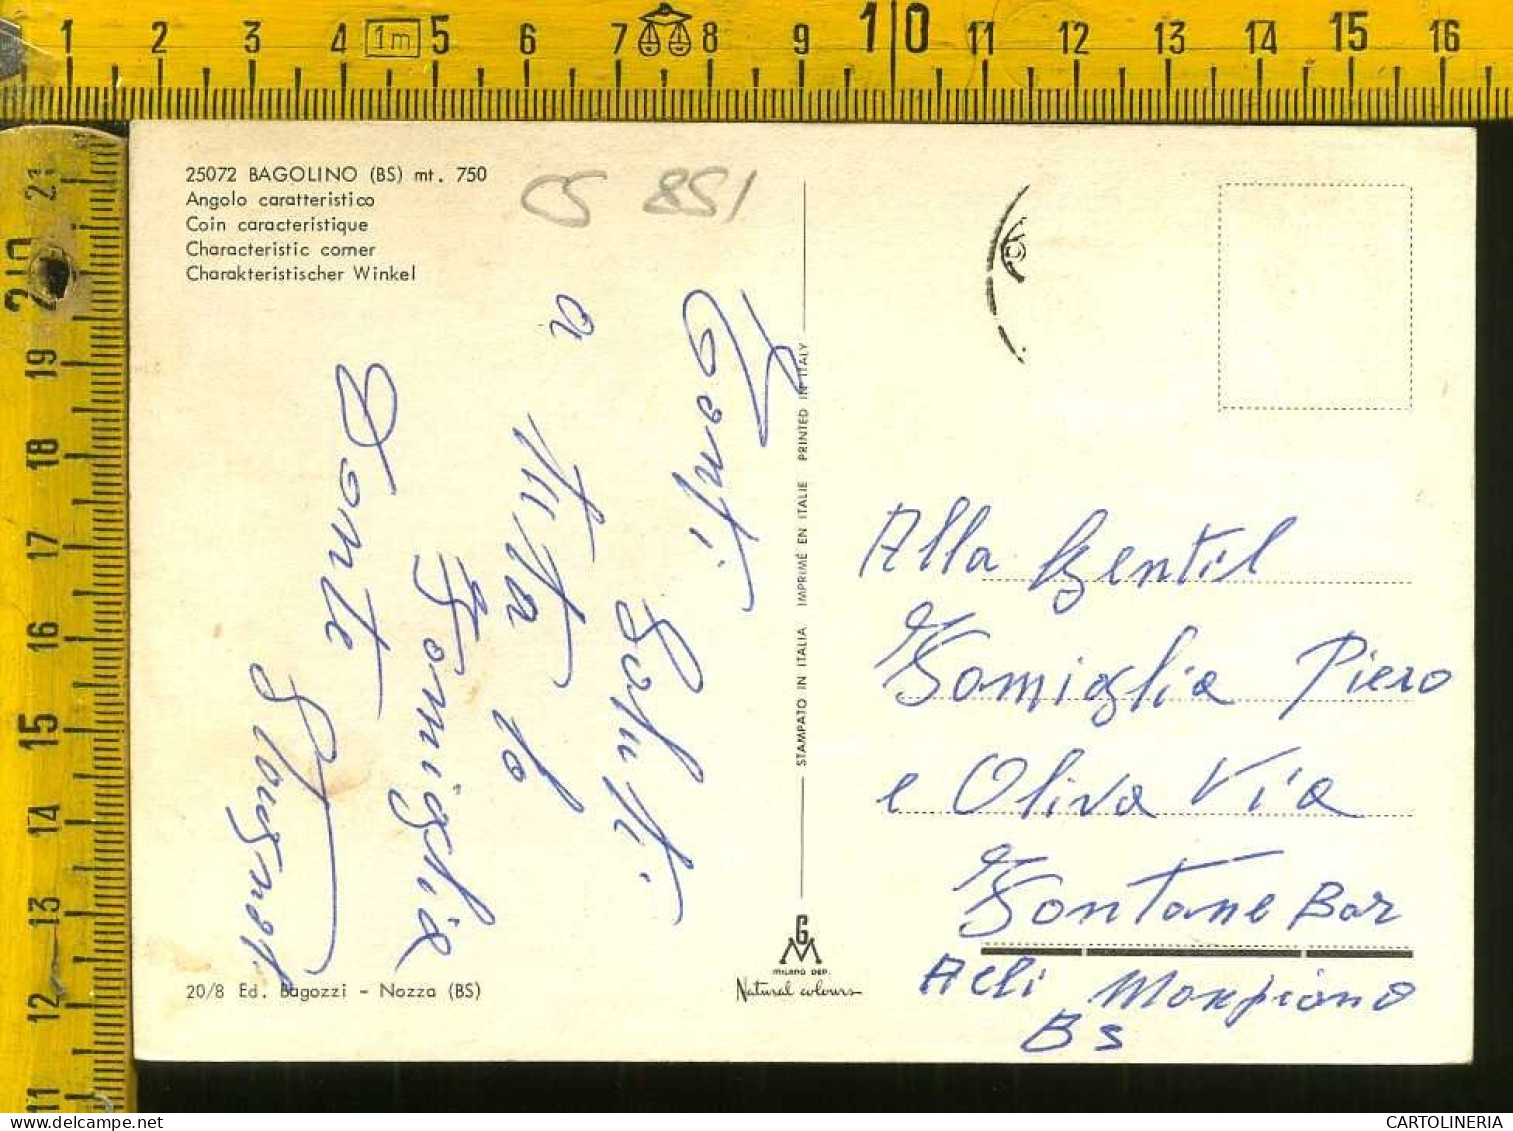 1 2 3 4 1m 5 6 7 8 9 10 11 12 13 14 15 16
21
20
19
18
17
16
15
14
13
12
11
25072 BAGOLINO (BS) mt. 750
Angolo caratteristico
Coin caracteristique
Characteristic corner
Charakteristischer Winkel
CS 851
Tanti Saluti
a tutta la
Famiglia
Dante
STAMPATO IN ITALIA IMPRIMÉ EN ITALIE PRINTED IN ITALY
Alla Gentil
Famiglia Piero
e Oliva Via
Fontane Bar
Acli Mompiano
BS
GM
MILANO DEP.
Natural colours
20/8 Ed. Bagozzi - Nozza (BS)
CARTOLINERIA